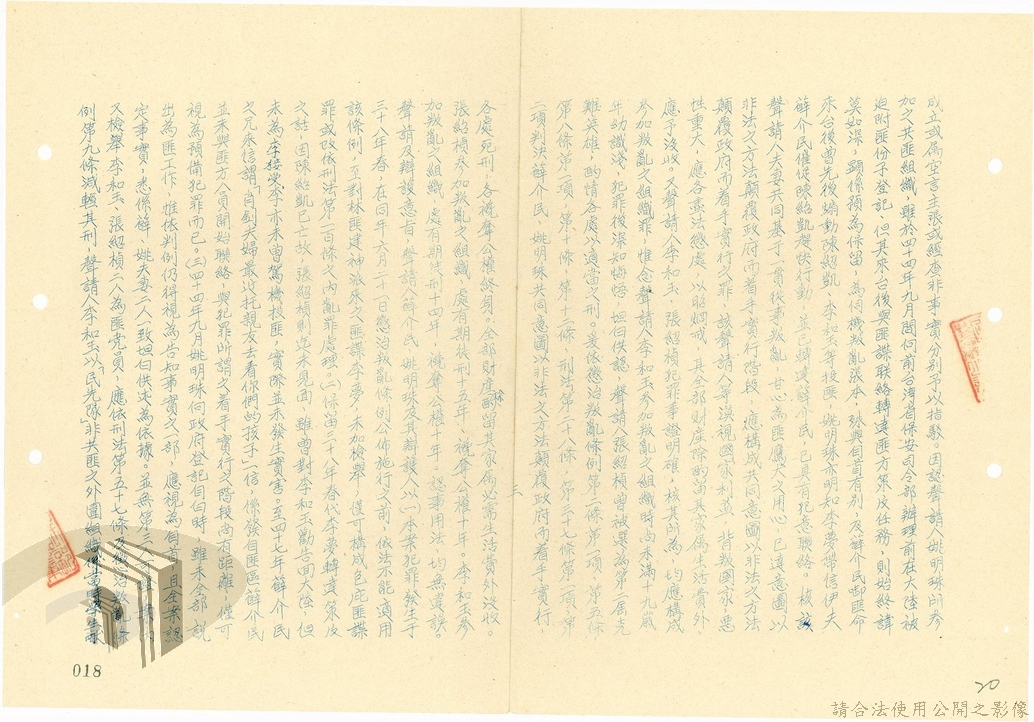 成立或為空言主張或經查非事實分別予以指駁。因認聲請人姚明珠所參
加之共匪組織，雖於四十四年九月間向前台灣省保安司令部辦理前在大陸被
迫附匪份子登記，但其來台後與匪諜聯絡轉達匪方策反任務，則始終諱
莫如深，顯係預為保留，為伺機叛亂張本，殊與自首有別，及薛介民卸匪命
來台後曾先後煽動陳紹凱、李和玉等投匪，姚明珠亦明知李夢帶信伊夫
薛介民催促陳紹凱趕快行動，並已轉達薛介民，已具有犯意聯絡。核該
聲請人夫妻共同基于一貫從事叛亂，甘心為匪鷹犬之用心，已達意圖以
非法之方法顛覆政府而着手實行階段，應構成共同意圖以非法之方法
顛覆政府而着手實行之罪。該聲請人等漠視國家利益，背叛國家，惡
性重大，應各濾法懲處，以昭炯戒，其全部財產除酌留其家屬生活費外，
應予沒收。又聲請人李和玉、張紹楨犯罪事證明確，核其所為，均應構成
參加叛亂之組織罪，惟念聲請人李和玉參加叛亂之組織時尚未滿十九歲
年幼識淺，犯罪後深知悔悟，坦白供認，聲請人張紹楨曾被選為第二屆克
難英雄，酌情各處以適當之刑。爰依懲治叛亂條例第二條第一項、第五條
第八條第一項、第十條、第十二條，刑法第二十八條、第三十七條第一項、第
二項判決薛介民、姚明珠共同意圖以非法之方法顛覆政府而着手實行，
三
各處死刑，各褫奪公權終身。全部財產除酌留其家屬必需生活費外沒收。
張紹楨參加叛亂之組織，處有期徒刑十五年，褫奪公權十年。李和玉參
加叛亂之組織，處有期徒刑十四年，褫奪公權十年。認事用法，均無違誤。
聲請及辯護意旨，聲請人薛介民、姚明珠及其辯護人以(一)本案犯罪發生于
三十八年春，在同年六月二十一日懲治叛亂條例公佈施行之前，依法不能適用
該條例，至對林匪建神派來之匪諜李夢，未加檢舉，僅可構成包庇匪諜
罪或改依刑法第一百條之內亂罪處理。(二)僅留三十八年春代李夢轉達策反
之話，因陳紹凱已亡故，張紹楨則迄未見面，雖曾對李和玉勸告回大陸，但
未為李接受，李亦未曾駕機投匪，實際並未發生實害。至四十七年薛介民
之兄來信謂「自釗夫婦最近托親友去看你們的孩子」一信，係發自匪區，薛介民
並未與匪方人員開始聯絡，與犯罪所謂之着手實行之階段尚有距離，僅可
視為預備犯罪而已。(三)四十四年九月姚明珠向政府登記自白時，雖未全部說
出為匪工作，惟依判例仍得視為告知事實之一部，應視為自首，且全案認
定事實，悉係薛、姚夫妻二人一致坦白供述為依據。並無第三人
又檢舉李和玉、張紹楨二人為匪党員，應依刑法第五十七條及懲治叛亂條
例第九條減輕其刑。聲請人李和玉以「民先隊」非共匪之外圍組織
018
20
請合法使用公開之影像